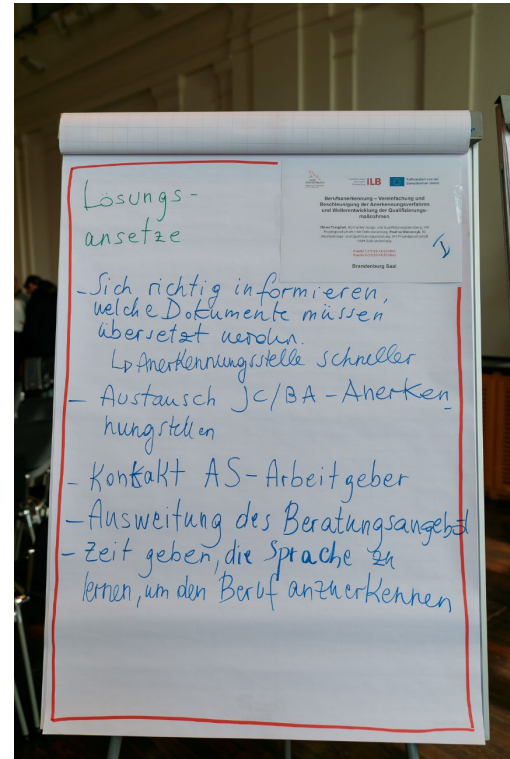 Lösungs-
ansetze
ILB
Berufsanerkennung – Vereinfachung und
Beschleunigung der Anerkennungsverfahren
und Weiterentwicklung der Qualifizierungs-
maßnahmen
Brandenburg Saal
- Sich richtig informieren,
welche Dokumente müssen
übersetzt werden.
↳ Anerkennungsstelle schneller
- Austausch JC/BA - Anerken-
nungstellen
- Kontakt AS - Arbeitgeber
- Ausweitung des Beratungsangebot
- Zeit geben, die Sprache zu
lernen, um den Beruf anzuerkennen